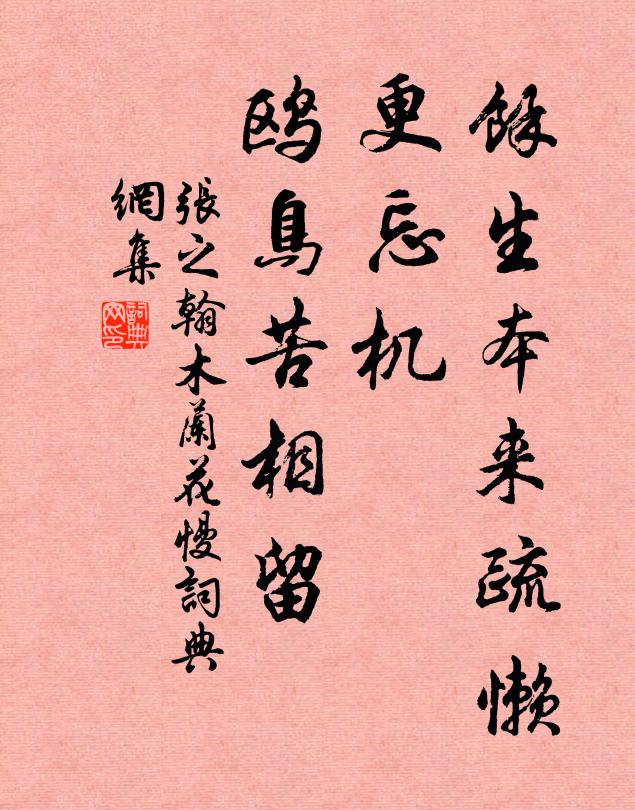 餘生本来疏懒
更忘机
鸥鳥苦相留
張之翰木蘭花慢詞典
網集
詞典
网印